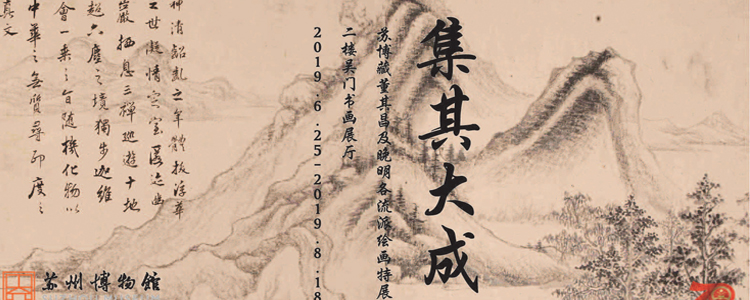 集其大成
苏博藏董其昌及晚明各流派绘画特展
二楼吴门书画展厅
2019.6.25-2019.8.18
神清韶亂之年體拔浮華
工世凝情定室匿迹幽
巖栖息三禪巡遊十地
超六塵之境獨步迦維
會一乘之旨隨機化物以
中華之無質尋印度之
真文
苏州博物館